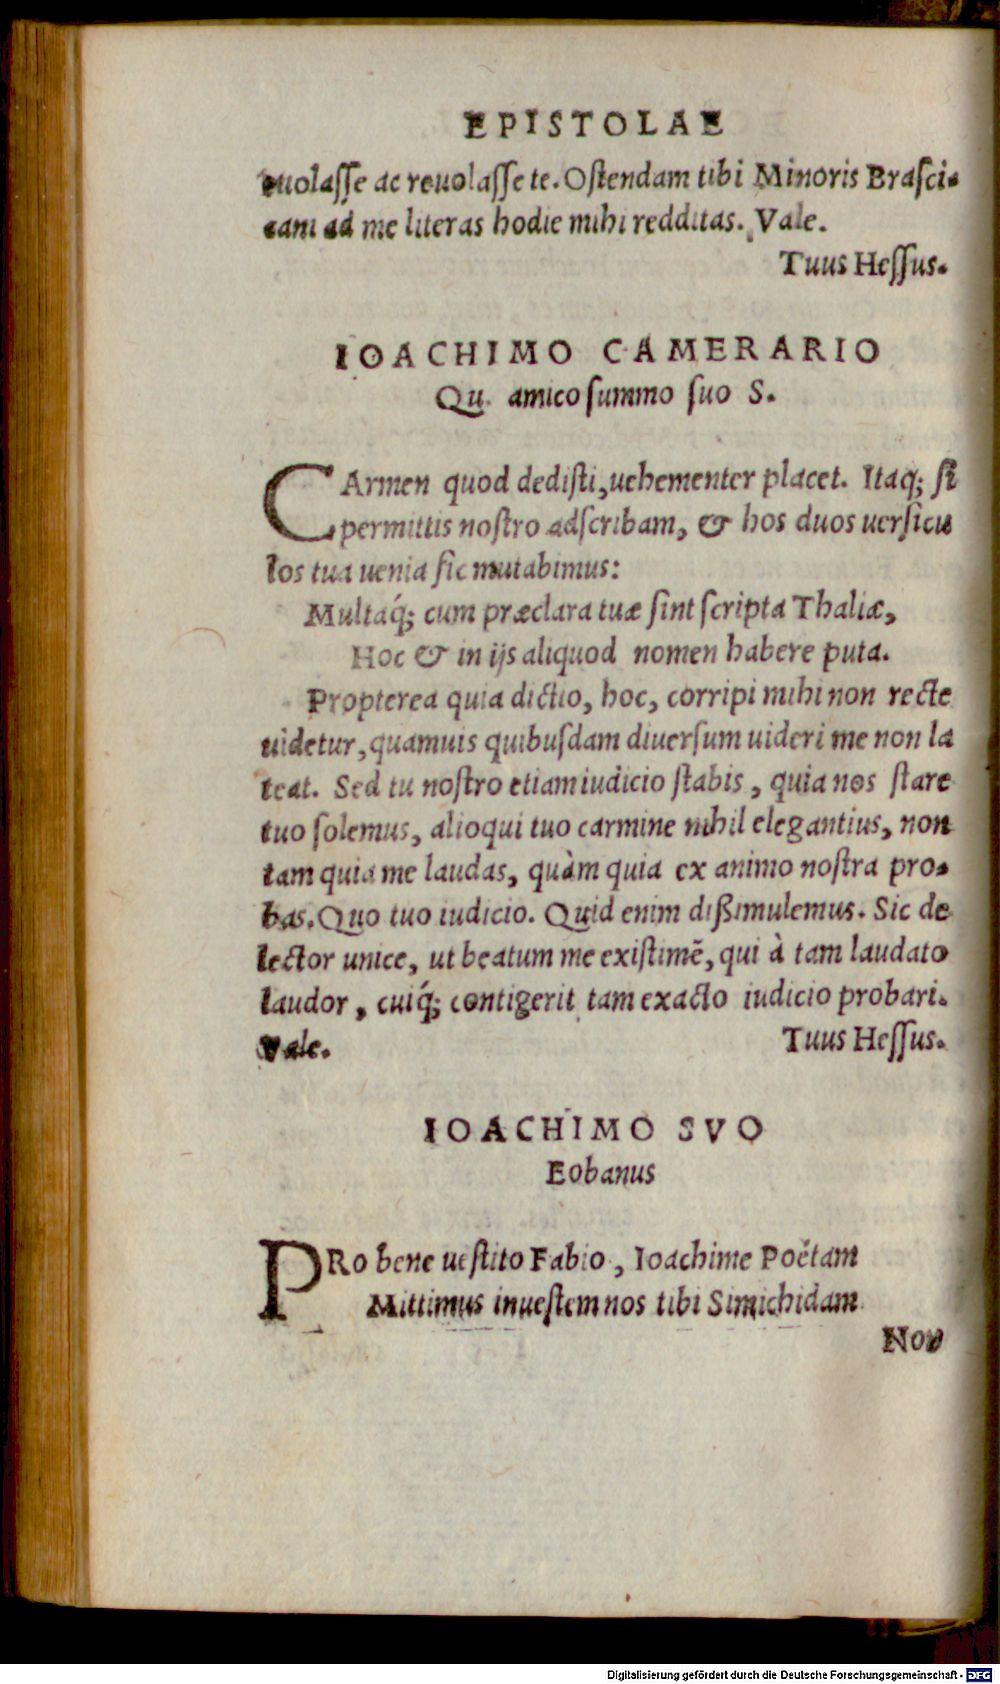 EPISTOLAE
euolasse ac reuolasse te. Ostendam tibi Minoris Brasci-
cani ad me literas hodie mihi redditas. Vale.
Tuus Hessus.
IOACHIMO CAMERARIO
Qu. amico summo suo S.
CArmen quod dedisti, uehementer placet. Itaq; si
permittis nostro adscribam, & hos duos uersicu
los tua uenia sic mutabimus:
Multaq́; cum præclara tuæ sint scripta Thaliæ,
Hoc & in ijs aliquod nomen habere puta.
Propterea quia dictio, hoc, corripi mihi non recte
uidetur, quamuis quibusdam diuersum uideri me non la
teat. Sed tu nostro etiam iudicio stabis, quia nos stare
tuo solemus, alioqui tuo carmine nihil elegantius, non
tam quia me laudas, quàm quia ex animo nostra pro-
bas. Quo tuo iudicio. Quid enim dißimulemus. Sic de
lector unice, ut beatum me existimē, qui à tam laudato
laudor, cuiq́; contigerit tam exacto iudicio probari.
Vale. Tuus Hessus.
IOACHIMO SVO
Eobanus
PRo bene uestito Fabio, Ioachime Poëtam
Mittimus inuestem nos tibi Simichidam
Non
Digitalisierung gefördert durch die Deutsche Forschungsgemeinschaft - DFG